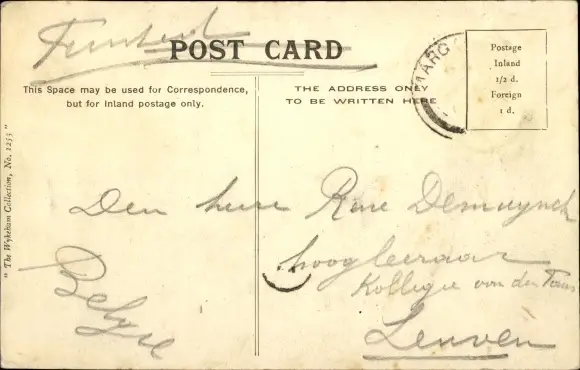 POST CARD
This Space may be used for Correspondence,
but for Inland postage only.
THE ADDRESS ONLY
TO BE WRITTEN HERE
MARG
Postage
Inland
1/2 d.
Foreign
1 d.
"The Wykeham Collection, No. 1253"
Den heer Rene Demuynck
hoogleeraar
Kollegie van den
Leuven
Belgie